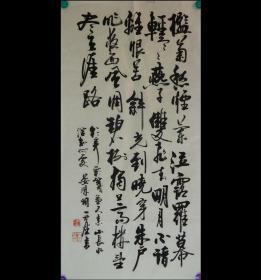 檻菊愁煙蘭泣露羅幕
輕寒燕子雙飛去明月不諳
離恨苦斜光到曉穿朱户
昨夜西風凋碧樹獨上高樓望
盡天涯路